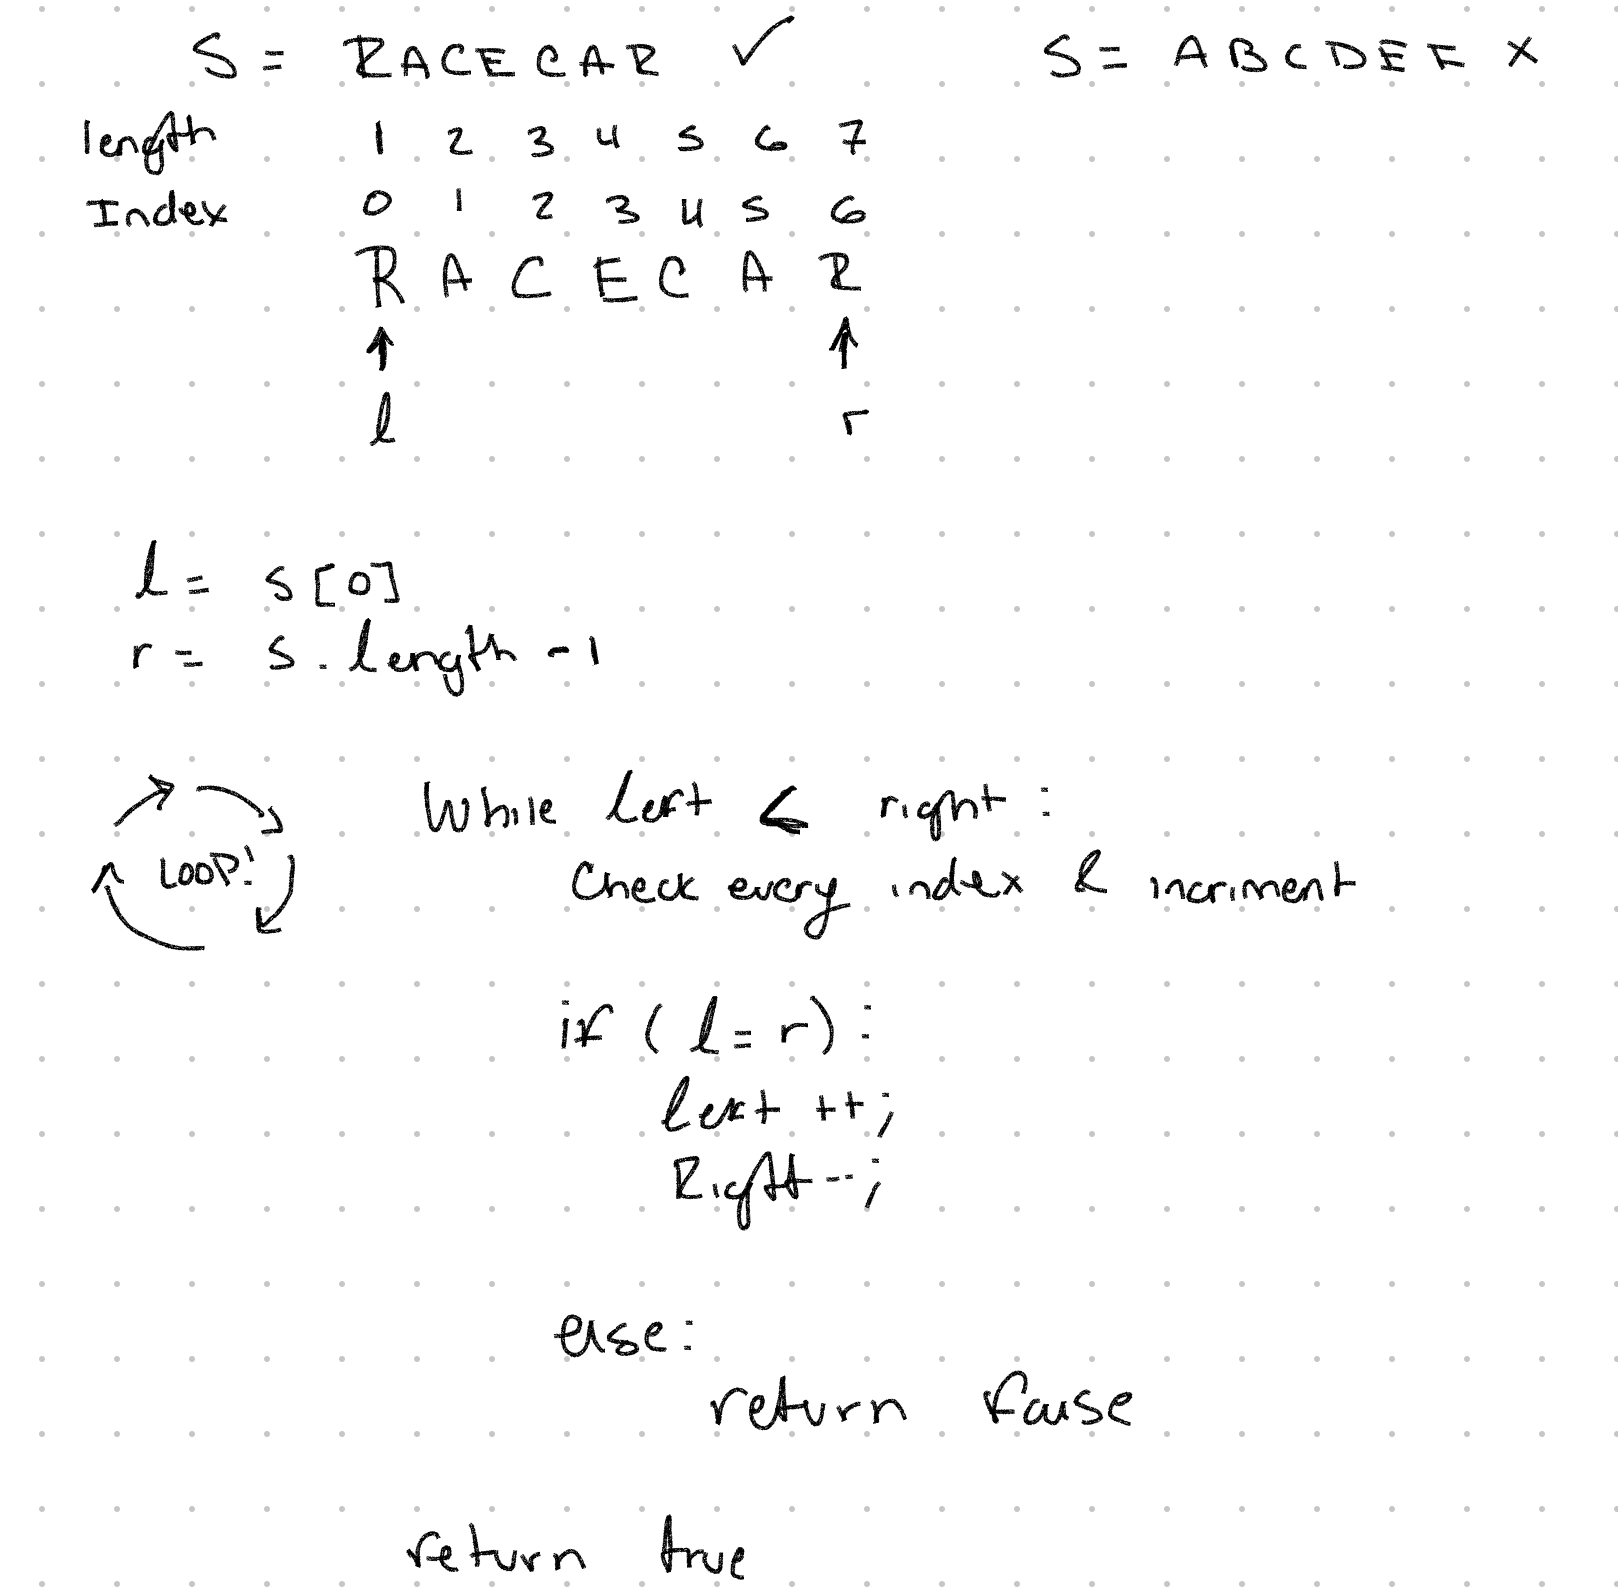 S = RACECAR ✓
S = ABCDEF X
length 1 2 3 4 5 6 7
Index 0 1 2 3 4 5 6
R A C E C A R
↑ ↑
l r
l = s[0]
r = s.length -1
LOOP!
While left < right :
Check every index & incriment
if ( l = r ) :
left ++;
Right --;
else:
return false
return true